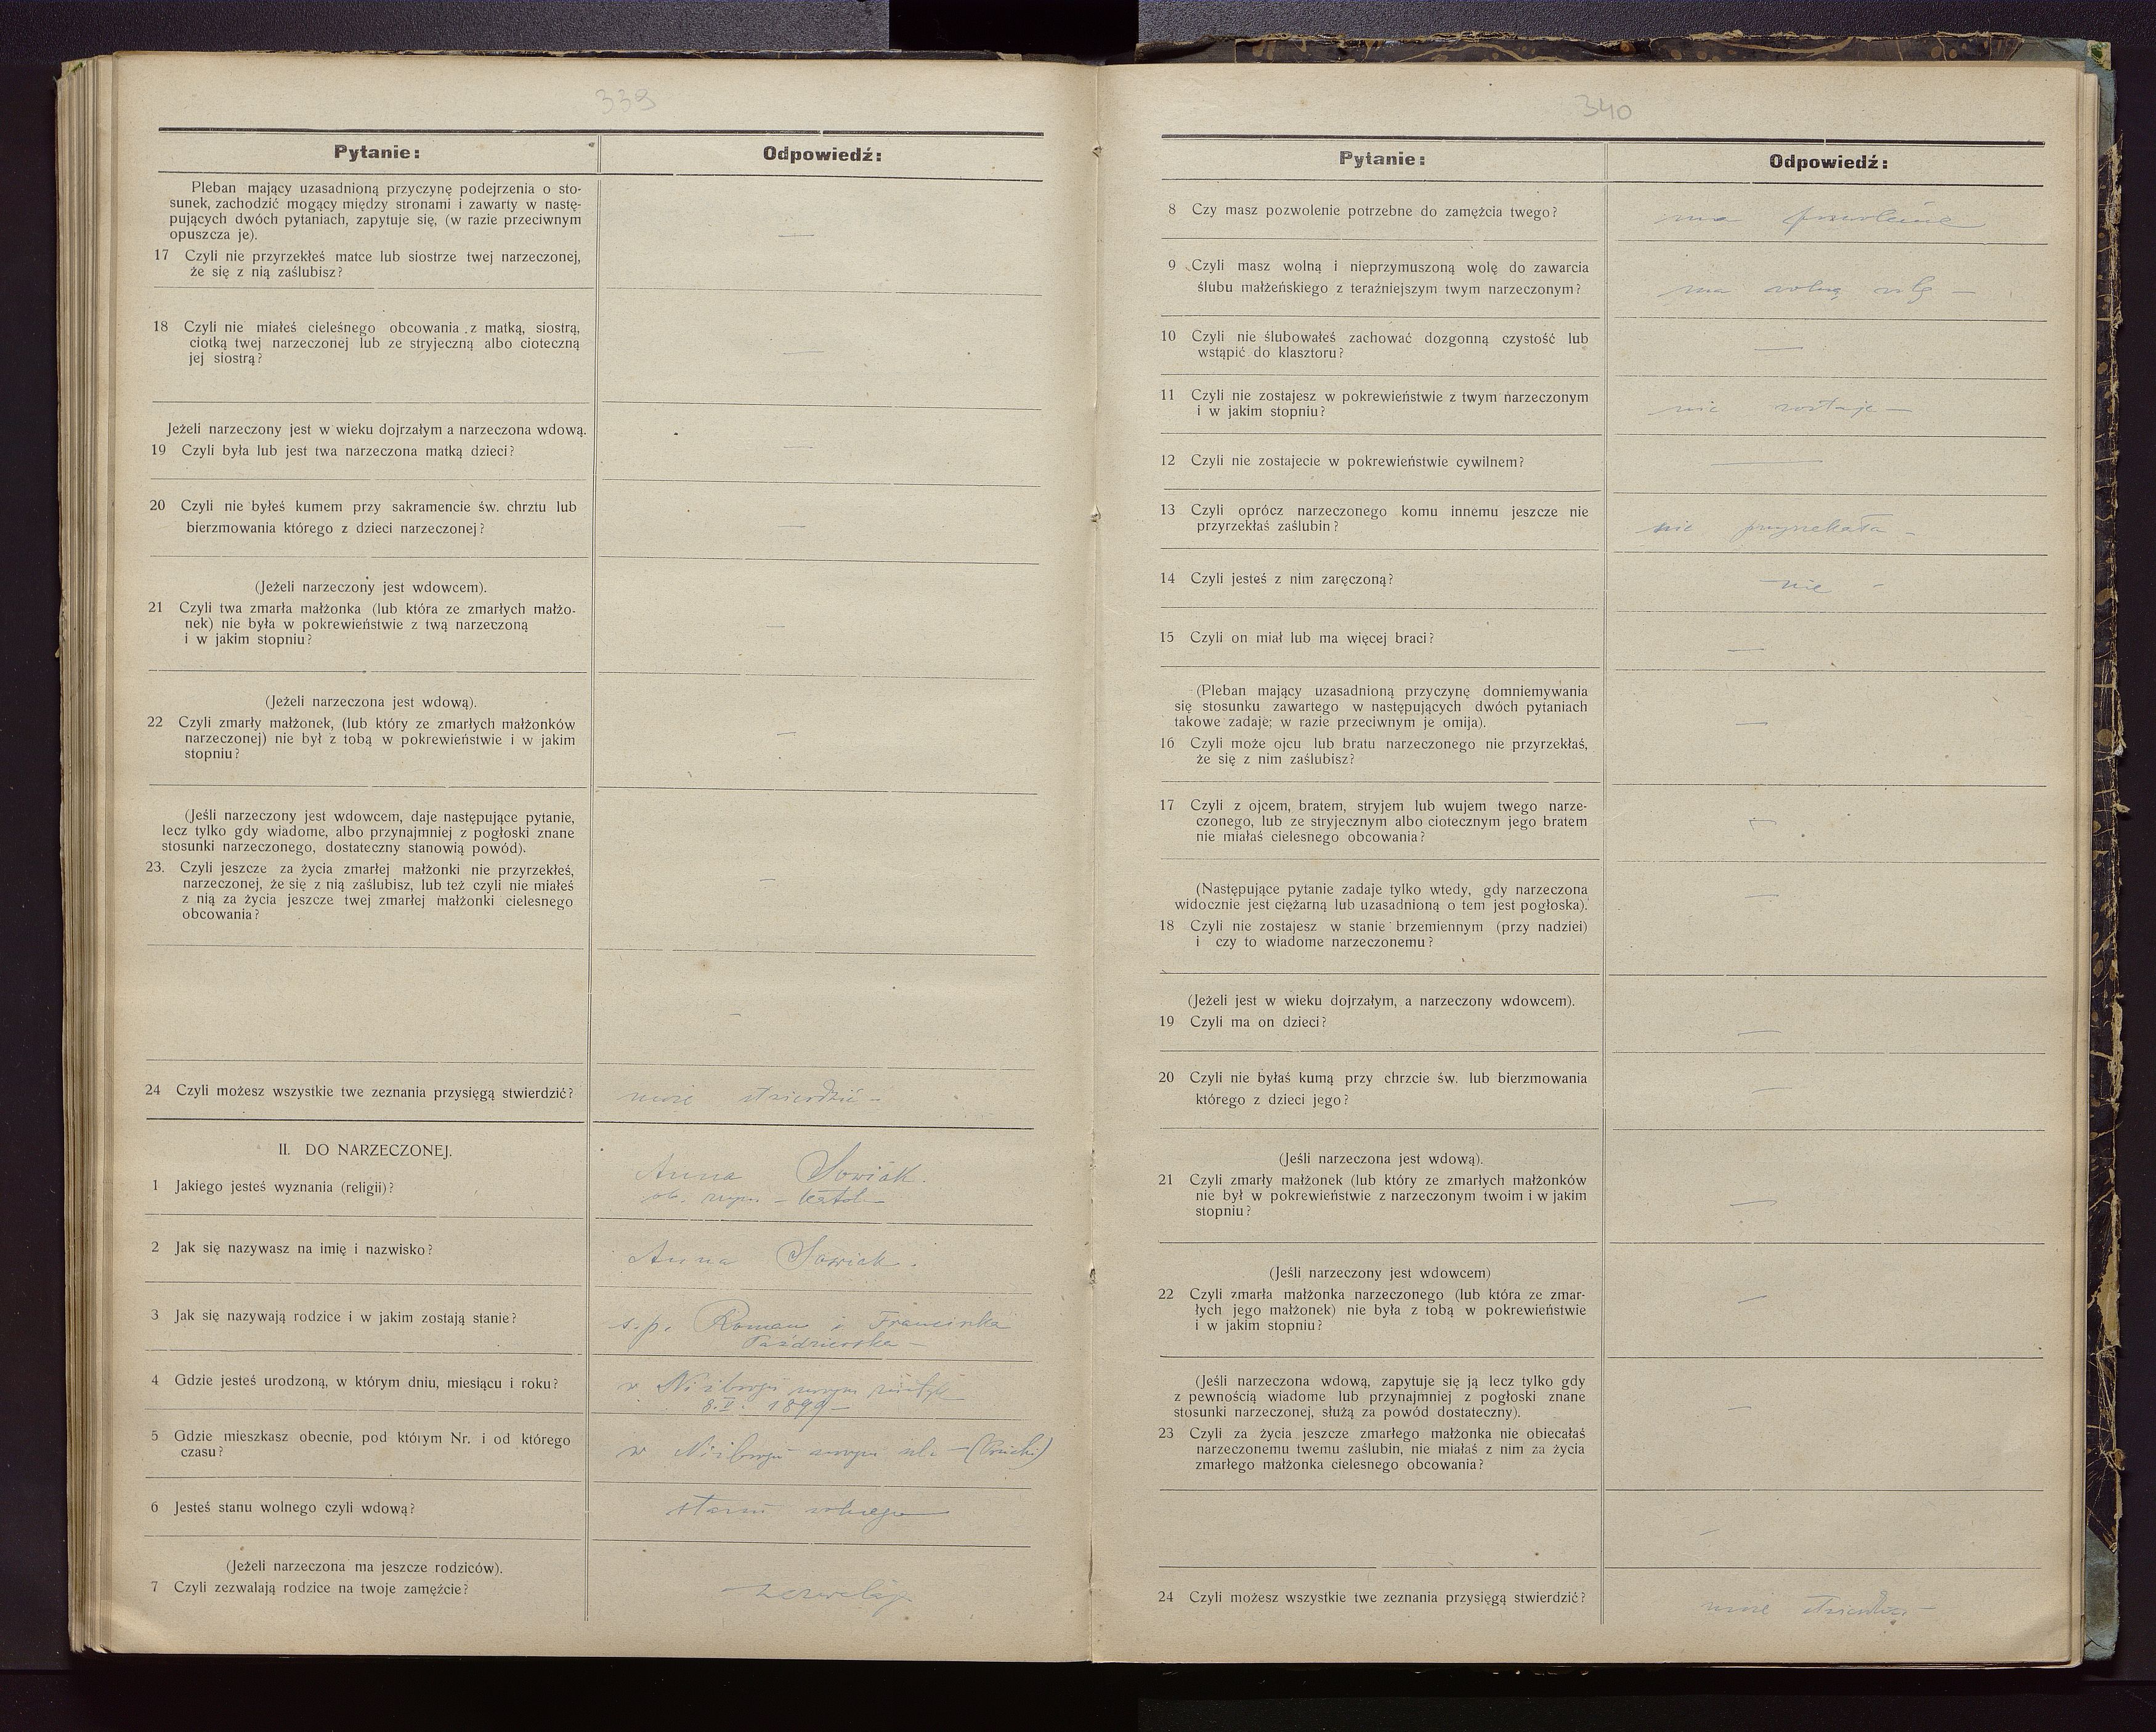 339
Pytanie:
Odpowiedź:
Pleban mający uzasadnioną przyczynę podejrzenia o sto-
sunek, zachodzić mogący między stronami i zawarty w nastę-
pujących dwóch pytaniach, zapytuje się, (w razie przeciwnym
opuszcza je).
—
17 Czyli nie przyrzekłeś matce lub siostrze twej narzeczonej,
że się z nią zaślubisz?
18 Czyli nie miałeś cieleśnego obcowania z matką, siostrą,
ciotką twej narzeczonej lub ze stryjeczną albo cioteczną
jej siostrą?
—
Jeżeli narzeczony jest w wieku dojrzałym a narzeczona wdową.
19 Czyli była lub jest twa narzeczona matką dzieci?
—
20 Czyli nie byłeś kumem przy sakramencie św. chrztu lub
bierzmowania którego z dzieci narzeczonej?
—
(Jeżeli narzeczony jest wdowcem).
21 Czyli twa zmarła małżonka (lub która ze zmarłych małżo-
nek) nie była w pokrewieństwie z twą narzeczoną
i w jakim stopniu?
—
(Jeżeli narzeczona jest wdową).
22 Czyli zmarły małżonek, (lub który ze zmarłych małżonków
narzeczonej) nie był z tobą w pokrewieństwie i w jakim
stopniu?
—
(Jeśli narzeczony jest wdowcem, daje następujące pytanie,
lecz tylko gdy wiadome, albo przynajmniej z pogłoski znane
stosunki narzeczonego, dostateczny stanowią powód).
23. Czyli jeszcze za życia zmarłej małżonki nie przyrzekłeś,
narzeczonej, że się z nią zaślubisz, lub też czyli nie miałeś
z nią za życia jeszcze twej zmarłej małżonki cielesnego
obcowania?
—
—
24 Czyli możesz wszystkie twe zeznania przysięgą stwierdzić?
może stwierdzić —
II. DO NARZECZONEJ.
Anna Sowiak.
1 Jakiego jesteś wyznania (religii)?
ob. rzym. — katol. —
2 Jak się nazywasz na imię i nazwisko?
Anna Sowiak.
3 Jak się nazywają rodzice i w jakim zostają stanie?
ś. p. Roman i Franciszka
Październska —
4 Gdzie jesteś urodzoną, w którym dniu, miesiącu i roku?
w Niżborgu nowym
8. V. 1899 —
5 Gdzie mieszkasz obecnie, pod którym Nr. i od którego
czasu?
w Niżborgu nowym
6 Jesteś stanu wolnego czyli wdową?
stanu wolnego
(Jeżeli narzeczona ma jeszcze rodziców).
7 Czyli zezwalają rodzice na twoje zamęźcie?
zezwalają
340
Pytanie:
Odpowiedź:
8 Czy masz pozwolenie potrzebne do zamężcia twego?
ma pozwolenie
9 Czyli masz wolną i nieprzymuszoną wolę do zawarcia
ślubu małżeńskiego z teraźniejszym twym narzeczonym?
ma wolną wolę —
10 Czyli nie ślubowałeś zachować dozgonną czystość lub
wstąpić do klasztoru?
—
11 Czyli nie zostajesz w pokrewieństwie z twym narzeczonym
i w jakim stopniu?
nie zostaje —
12 Czyli nie zostajecie w pokrewieństwie cywilnem?
—
13 Czyli oprócz narzeczonego komu innemu jeszcze nie
przyrzekłaś zaślubin?
nie przyrzekała —
14 Czyli jesteś z nim zaręczoną?
nie —
15 Czyli on miał lub ma więcej braci?
—
(Pleban mający uzasadnioną przyczynę domniemywania
się stosunku zawartego w następujących dwóch pytaniach
takowe zadaje; w razie przeciwnym je omija).
—
16 Czyli może ojcu lub bratu narzeczonego nie przyrzekłaś,
że się z nim zaślubisz?
17 Czyli z ojcem, bratem, stryjem lub wujem twego narze-
czonego, lub ze stryjecznym albo ciotecznym jego bratem
nie miałaś cielesnego obcowania?
—
(Następujące pytanie zadaje tylko wtedy, gdy narzeczona
widocznie jest ciężarną lub uzasadnioną o tem jest pogłoska).
—
18 Czyli nie zostajesz w stanie brzemiennym (przy nadziei)
i czy to wiadome narzeczonemu?
(Jeżeli jest w wieku dojrzałym, a narzeczony wdowcem).
19 Czyli ma on dzieci?
—
20 Czyli nie byłaś kumą przy chrzcie św. lub bierzmowania
którego z dzieci jego?
—
(Jeśli narzeczona jest wdową).
21 Czyli zmarły małżonek (lub który ze zmarłych małżonków
nie był w pokrewieństwie z narzeczonym twoim i w jakim
stopniu?
—
(Jeśli narzeczony jest wdowcem)
22 Czyli zmarła małżonka narzeczonego (lub która ze zmar-
łych jego małżonek) nie była z tobą w pokrewieństwie
i w jakim stopniu?
—
(Jeśli narzeczona wdową, zapytuje się ją lecz tylko gdy
z pewnością wiadome lub przynajmniej z pogłoski znane
stosunki narzeczonej, służą za powód dostateczny).
—
23 Czyli za życia jeszcze zmarłego małżonka nie obiecałaś
narzeczonemu twemu zaślubin, nie miałaś z nim za życia
zmarłego małżonka cielesnego obcowania?
—
24 Czyli możesz wszystkie twe zeznania przysięgą stwierdzić?
może stwierdzić —